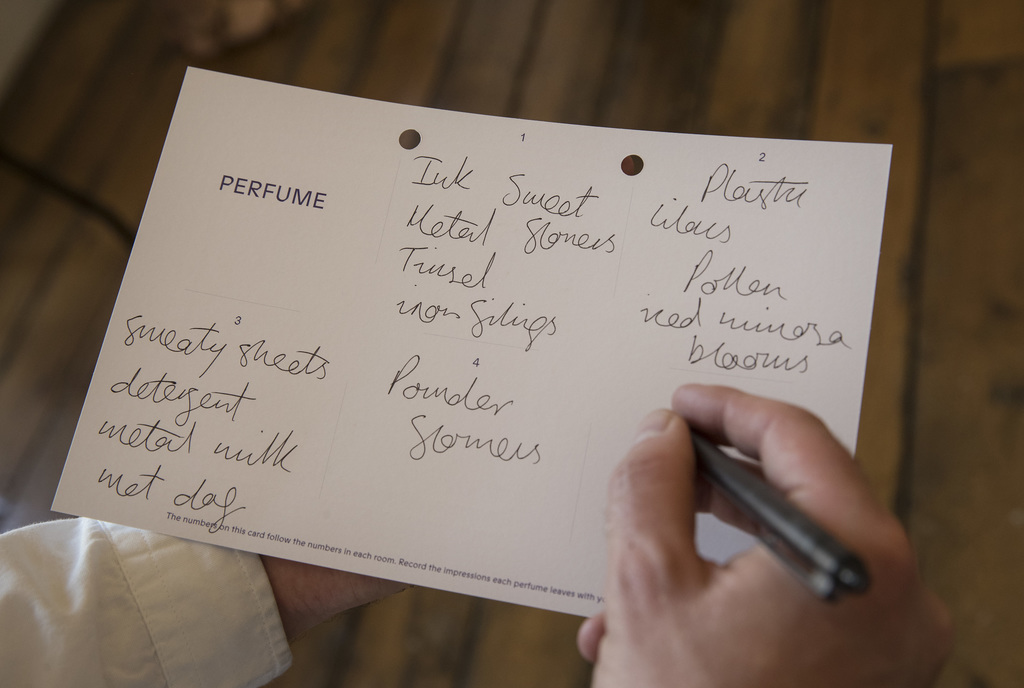 PERFUME
1
Ink Sweet
Metal flowers
Tinsel
iron filings
2
Plastic
lilacs
Pollen
iced mimosa
blooms
3
sweaty sheets
detergent
metal milk
wet dog
4
Powder
flowers
The numbers on this card follow the numbers in each room. Record the impressions each perfume leaves with